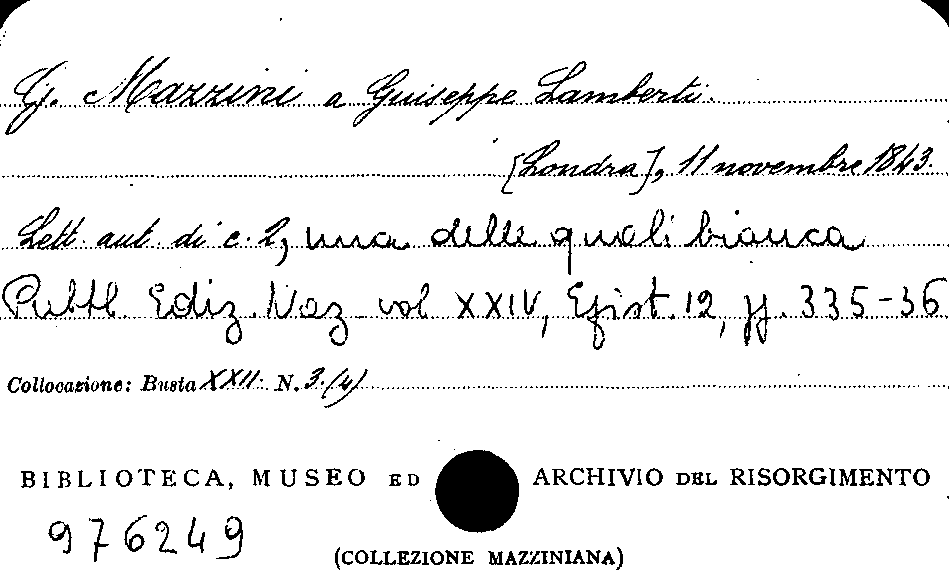 G. Mazzini a Guiseppe Lamberti.
[Londra], 11 novembre 1843.
Lett. aut. di c. 2, una delle quali bianca
Pubbl Ediz. Naz vol XXIV, Epist. 12, pp. 335-36
Collocazione: Busta XXII. N. 3.(4)
BIBLIOTECA, MUSEO ED ARCHIVIO DEL RISORGIMENTO
976249
(COLLEZIONE MAZZINIANA)